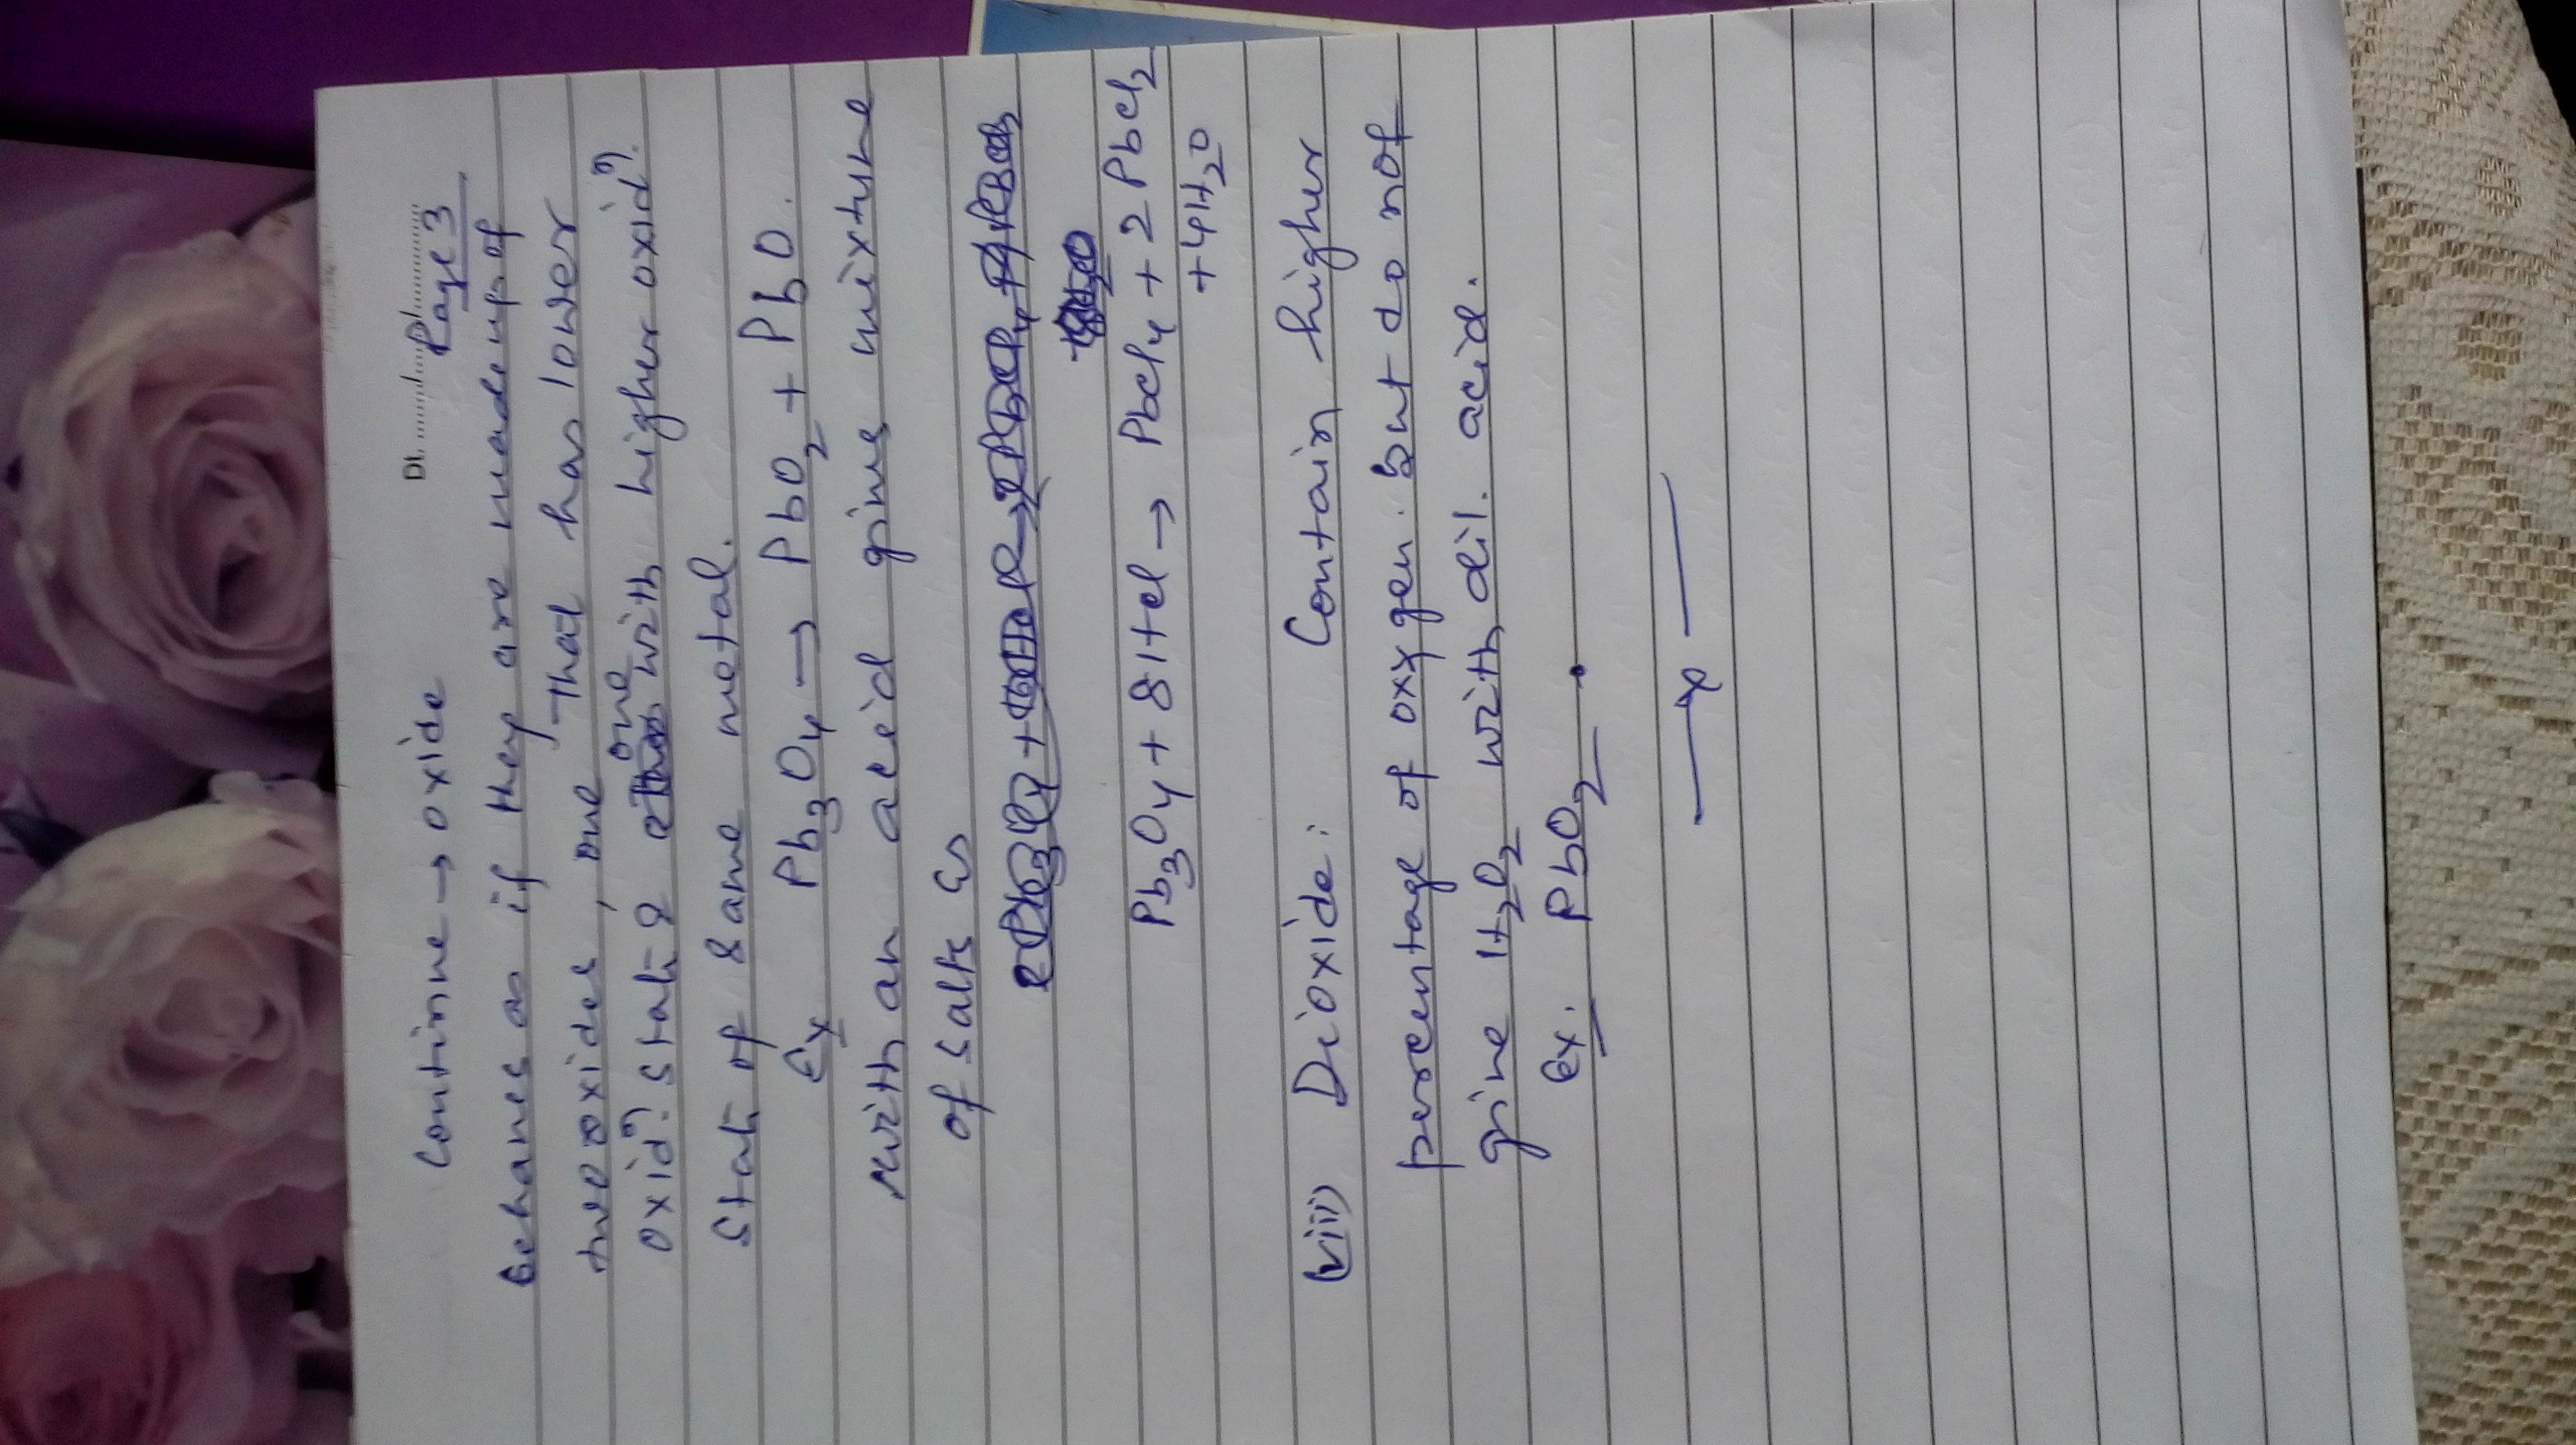 Dt. ......./......./.......
Continue → oxide Page 3
Behaves as if they are made up of
two oxides, one that has lower
oxidⁿ. state & one with higher oxidⁿ.
state of same metal.
Ex Pb₃O₄ → PbO₂ + PbO.
with an acid give mixture
of salts
Pb₃O₄ + 8HCl → PbCl₄ + 2PbCl₂
+ 4H₂O
(viii) Dioxide: Contain higher
percentage of oxygen. but do not
give H₂O₂ with dil. acid.
Ex. PbO₂.
—x—